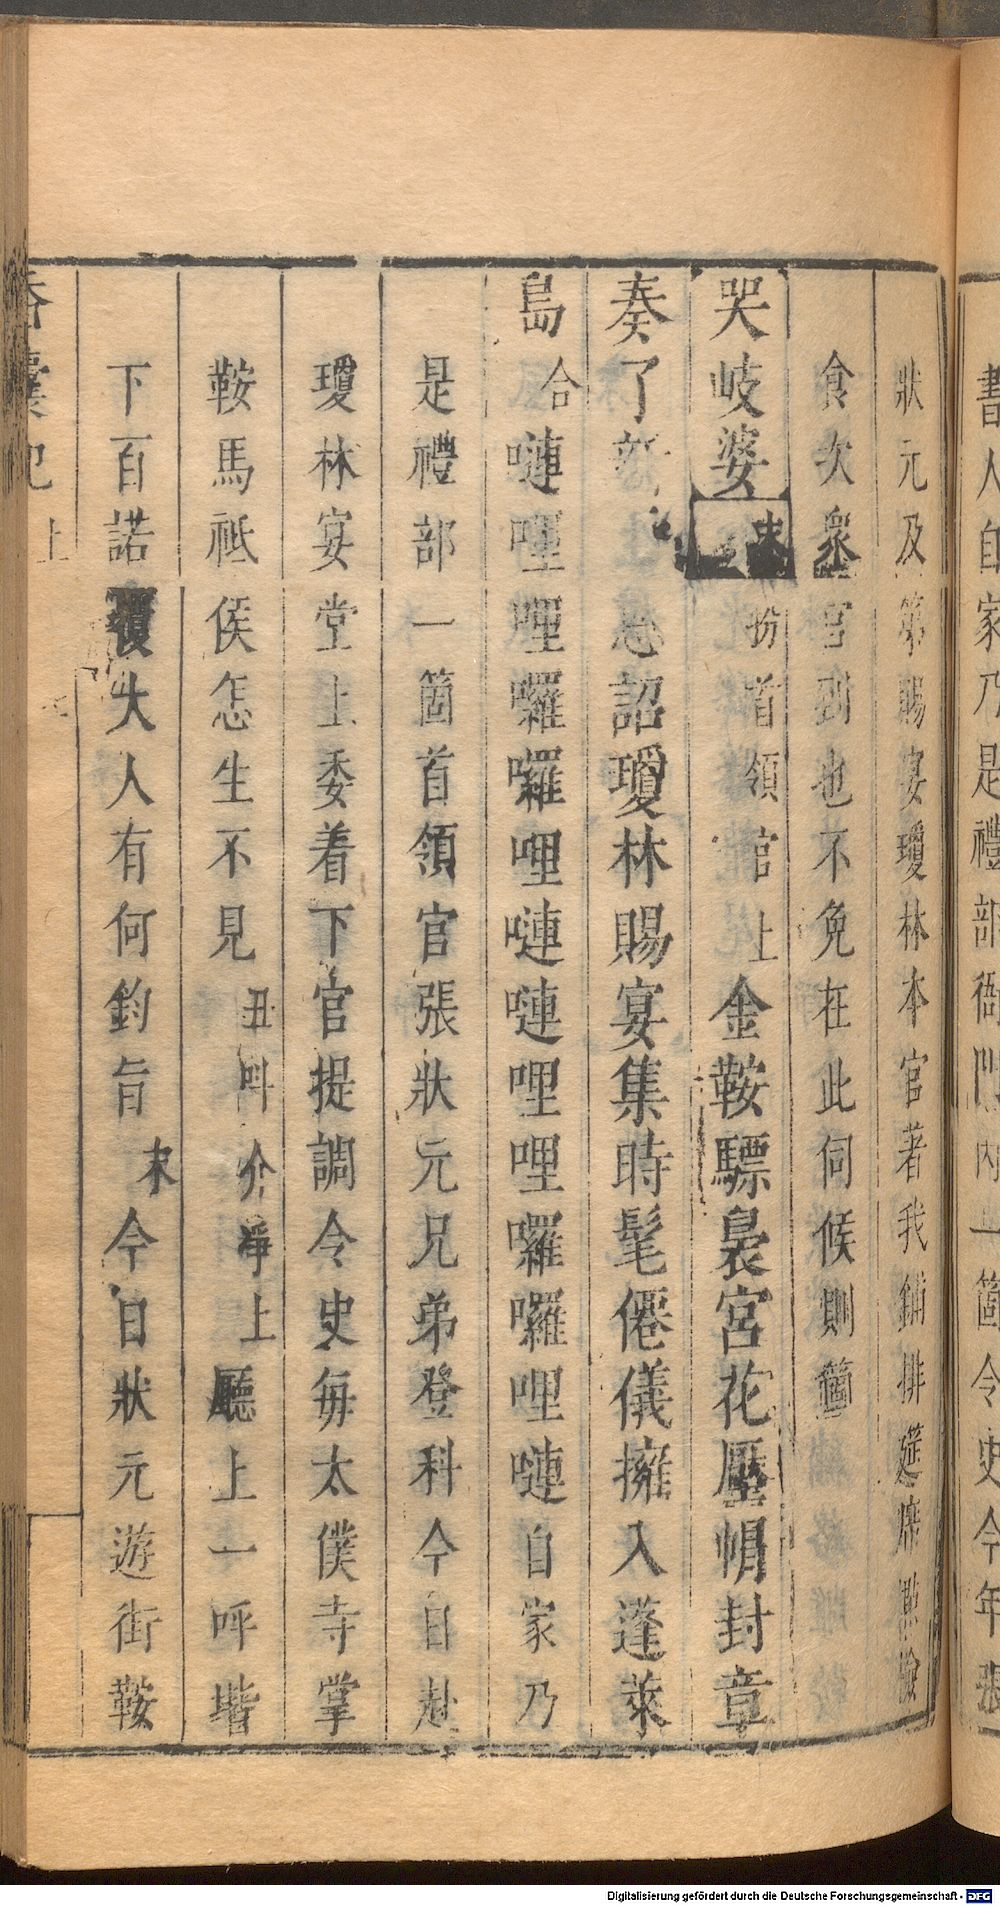 書人自家乃是禮部衙門內一箇令史今年張
狀元及第賜宴瓊林本官著我鋪排筵席
食次衆官到也不免在此伺候則箇
哭岐婆 末扮首領官上 金鞍驃裊宮花壓帽封章
奏了 恩詔瓊林賜宴集時髦僊儀擁入蓬萊
島 合 嗹哩哩囉囉哩嗹嗹哩哩囉囉哩嗹自家乃
是禮部一箇首領官張狀元兄弟登科今日赴
瓊林宴堂上委着下官提調令史每太僕寺掌
鞍馬祗候怎生不見 丑叫介淨上 廳上一呼堦
下百諾覆大人有何鈞旨 末 今日狀元遊街鞍
香囊記 上
Digitalisierung gefördert durch die Deutsche Forschungsgemeinschaft - DFG